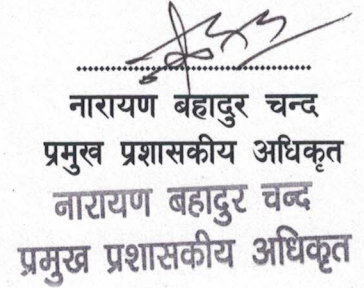 नारायण बहादुर चन्द
प्रमुख प्रशासकीय अधिकृत
नारायण बहादुर चन्द
प्रमुख प्रशासकीय अधिकृत